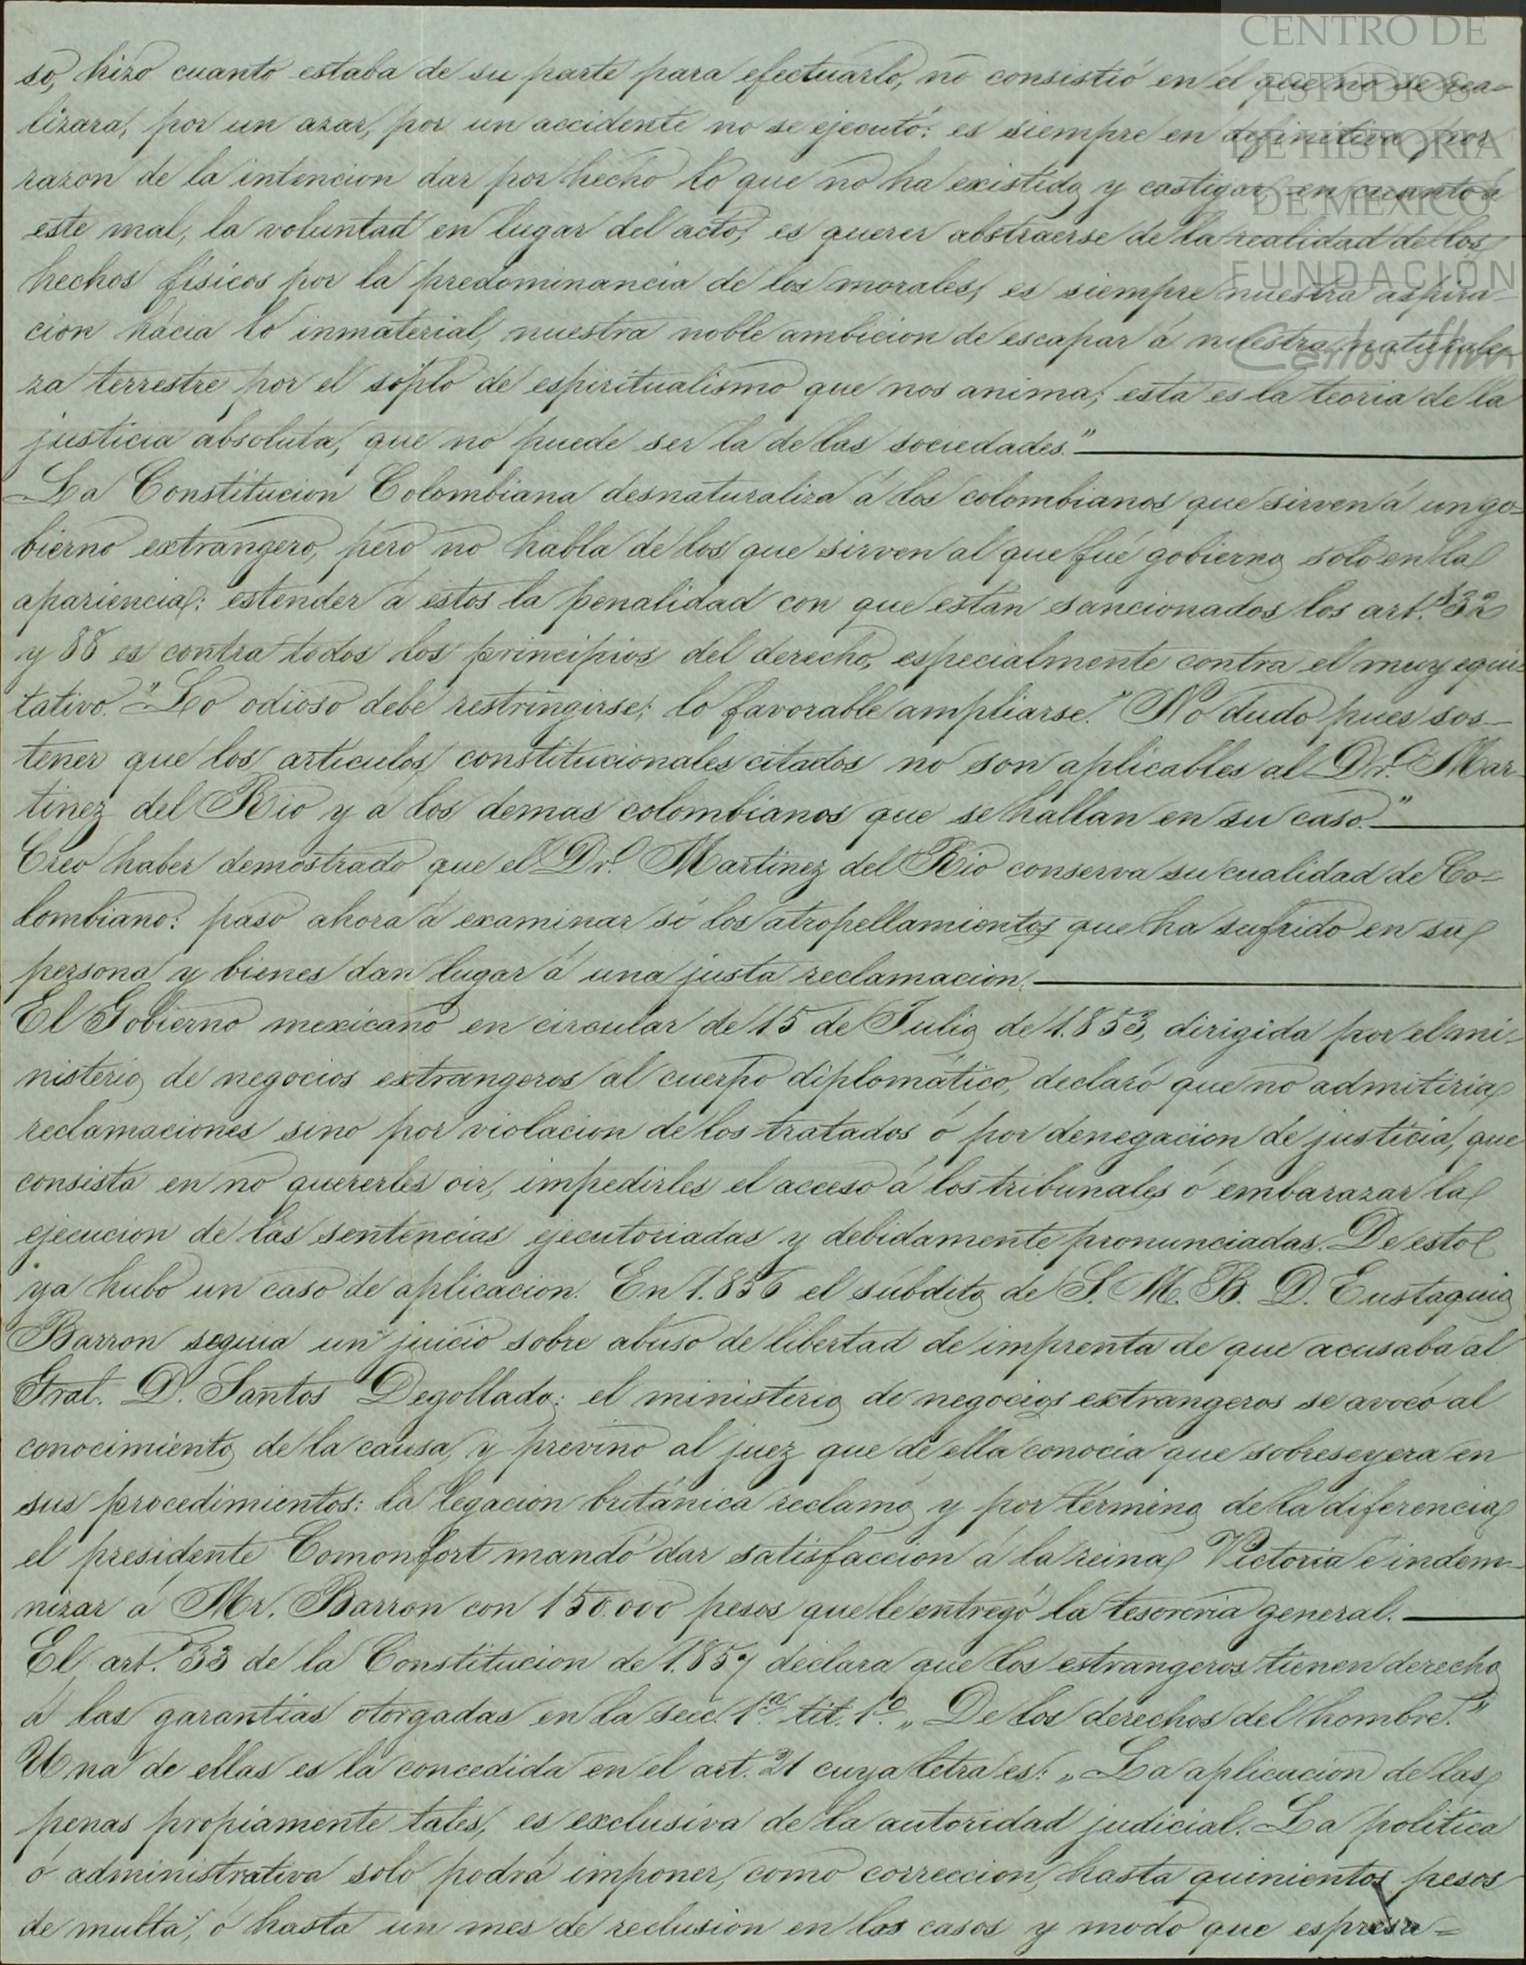 CENTRO DE
ESTUDIOS
DE HISTORIA
DE MEXICO
FUNDACIÓN
Carlos Slim
so, hizo cuanto estaba de su parte para efectuarlo, no consistió en él que no se rea-
lizara, por un azar, por un accidente no se ejecutó: es siempre en definitiva, por
razon de la intencion dar por hecho lo que no ha existido, y castigar, en cuanto á
este mal, la voluntad en lugar del acto, es querer abstraerse de la realidad de los
hechos físicos por la predominancia de los morales, es siempre nuestra aspira-
cion hácia lo inmaterial, nuestra noble ambicion de escapar á nuestra naturale-
za terrestre por el soplo de espiritualismo que nos anima; esta es la teoria de la
justicia absoluta, que no puede ser la de las sociedades."
La Constitucion Colombiana desnaturaliza á los colombianos que sirven á un go-
bierno extrangero, pero no habla de los que sirven al que fué gobierno solo en la
apariencia: estender á estos la penalidad con que están sancionados los art.s 32
y 88 es contra todos los principios del derecho, especialmente contra el muy equi-
tativo. "Lo odioso debe restringirse; lo favorable ampliarse." No dudo pues sos-
tener que los artículos constitucionales citados no son aplicables al Dr. Mar-
tinez del Rio y a los demas colombianos que se hallan en su caso."
Creo haber demostrado que el Dr. Martinez del Rio conserva su cualidad de Co-
lombiano: paso ahora á examinar si los atropellamientos que ha sufrido en su
persona y bienes dan lugar á una justa reclamacion.
El Gobierno mexicano en circular de 15 de Julio de 1.853, dirigida por el mi-
nisterio de negocios extrangeros al cuerpo diplomático, declaró que no admitiria
reclamaciones sino por violacion de los tratados ó por denegacion de justicia, que
consista en no quererles oir, impedirles el acceso á los tribunales ó embarazar la
ejecucion de las sentencias ejecutoriadas y debidamente pronunciadas. De esto
ya hubo un caso de aplicacion. En 1.856 el súbdito de S. M. B. D. Eustaquio
Barron seguia un juicio sobre abuso de libertad de imprenta de que acusaba al
Gral. D. Santos Degollado: el ministerio de negocios extrangeros se avocó al
conocimiento de la causa, y previno al juez que de ella conocia que sobreseyera en
sus procedimientos: la legacion británica reclamó, y por término de la diferencia
el presidente Comonfort mandó dar satisfaccion á la reina Victoria é indem-
nizar á Mr. Barron con 150.000 pesos que le entregó la tesoreria general.
El art. 33 de la Constitucion de 1.857 declara que los estrangeros tienen derecho
á las garantias otorgadas en la secc. 1.ª tít. 1.º „De los derechos del hombre."
Una de ellas es la concedida en el art. 21 cuya letra es: „La aplicacion de las
penas propiamente tales, es exclusiva de la autoridad judicial. La politica
ó administrativa solo podrá imponer, como correccion, hasta quinientos pesos
de multa, ó hasta un mes de reclusion en los casos y modo que espresa-